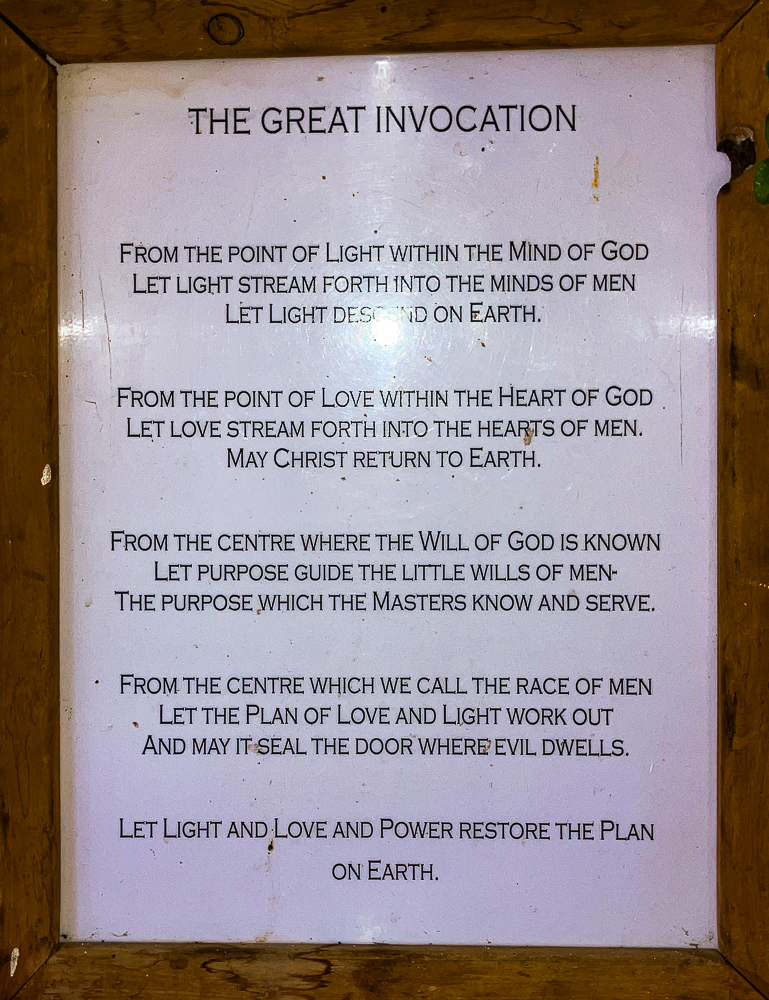 THE GREAT INVOCATION
FROM THE POINT OF LIGHT WITHIN THE MIND OF GOD
LET LIGHT STREAM FORTH INTO THE MINDS OF MEN
LET LIGHT DESCEND ON EARTH.
FROM THE POINT OF LOVE WITHIN THE HEART OF GOD
LET LOVE STREAM FORTH INTO THE HEARTS OF MEN.
MAY CHRIST RETURN TO EARTH.
FROM THE CENTRE WHERE THE WILL OF GOD IS KNOWN
LET PURPOSE GUIDE THE LITTLE WILLS OF MEN-
THE PURPOSE WHICH THE MASTERS KNOW AND SERVE.
FROM THE CENTRE WHICH WE CALL THE RACE OF MEN
LET THE PLAN OF LOVE AND LIGHT WORK OUT
AND MAY IT SEAL THE DOOR WHERE EVIL DWELLS.
LET LIGHT AND LOVE AND POWER RESTORE THE PLAN
ON EARTH.